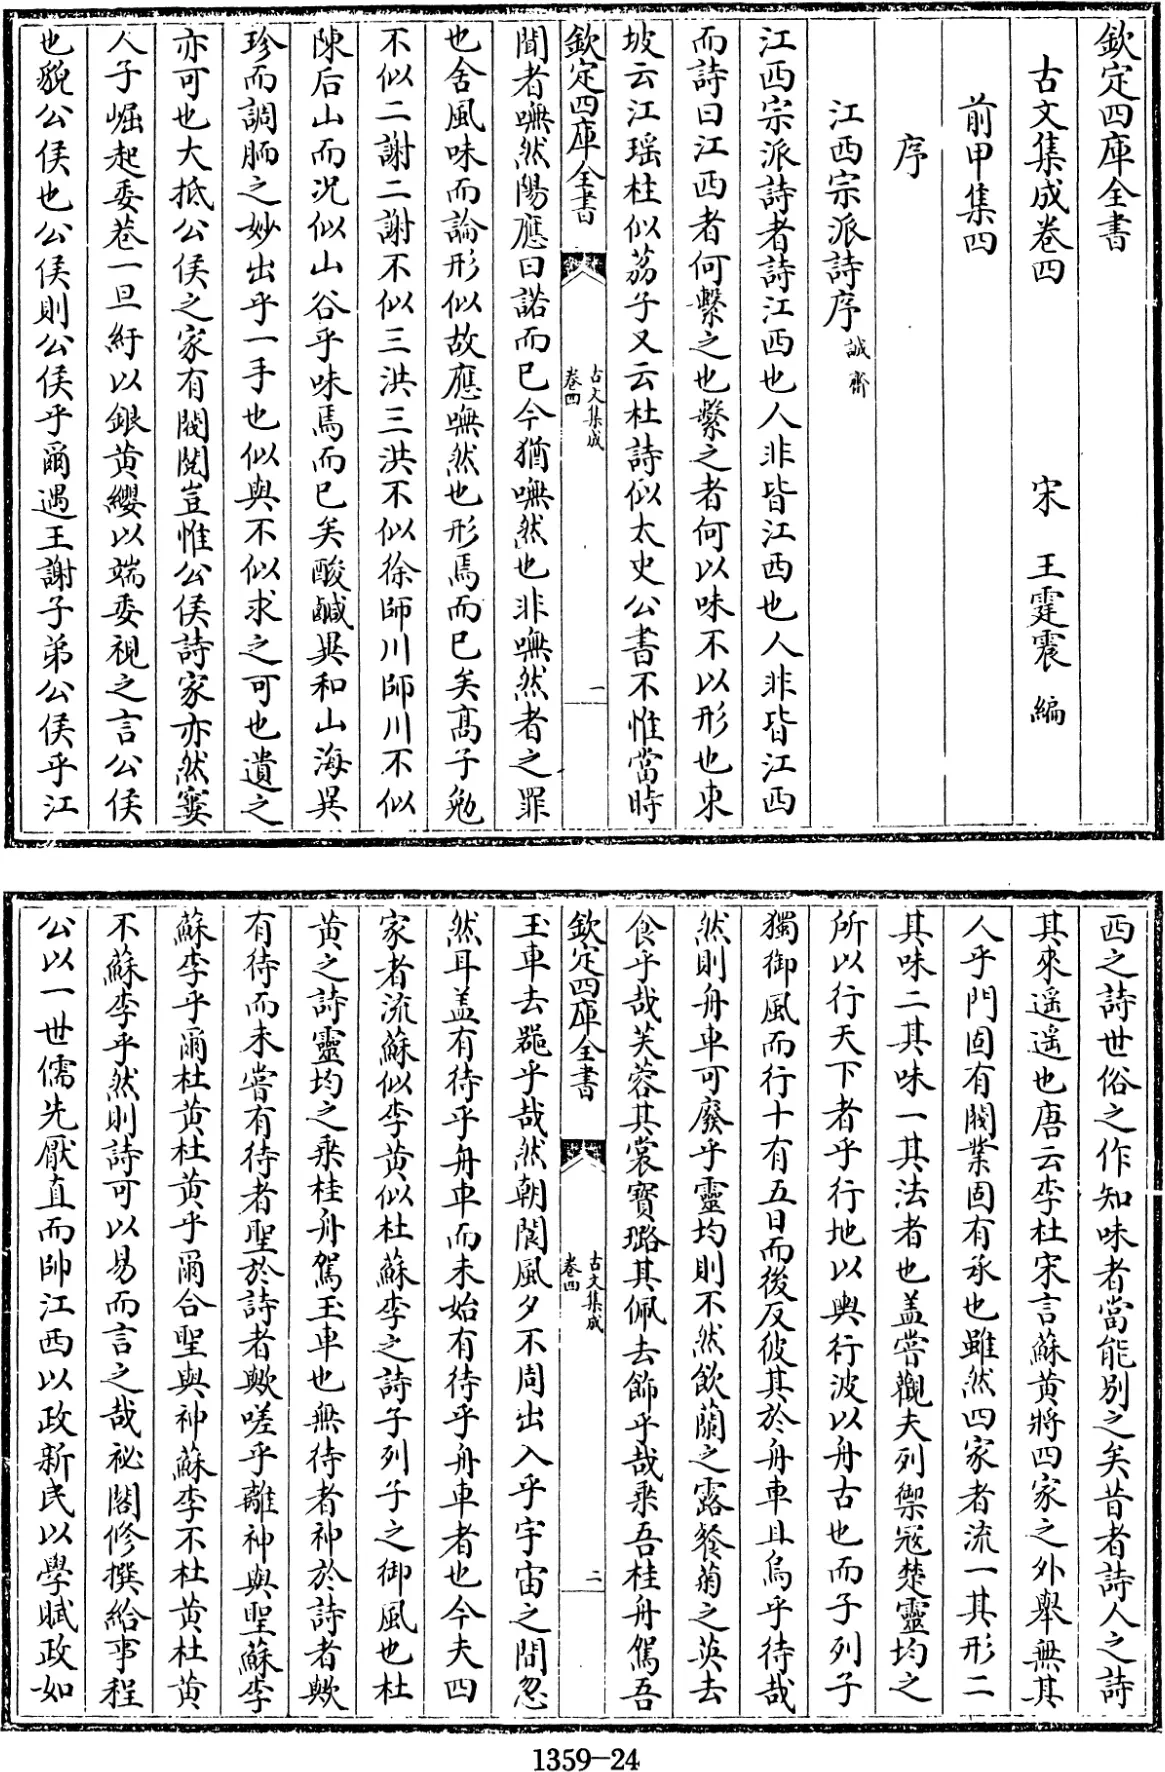 欽定四庫全書
古文集成卷四
宋　王霆震　編
前甲集四
序
江西宗派詩序誠齋
江西宗派詩者詩江西也人非皆江西也人非皆江西
而詩曰江西者何繫之也繫之者何以味不以形也東
坡云江瑶柱似荔子又云杜詩似太史公書不惟當時
欽定四庫全書
古文集成
卷四
一
聞者嘸然陽應曰諾而已今猶嘸然也非嘸然者之罪
也舍風味而論形似故應嘸然也形焉而已矣髙子勉
不似二謝二謝不似三洪三洪不似徐師川師川不似
陳后山而况似山谷乎味焉而已矣酸鹹異和山海異
珍而調胹之妙出乎一手也似與不似求之可也遺之
亦可也大抵公侯之家有閥閲豈惟公侯詩家亦然窶
人子崛起委巷一旦紆以銀黄纓以端委視之言公侯
也貌公侯也公侯則公侯乎爾遇王謝子弟公侯乎江
西之詩世俗之作知味者當能别之矣昔者詩人之詩
其來遥遥也唐云李杜宋言蘇黄將四家之外舉無其
人乎門固有閥業固有承也雖然四家者流一其形二
其味二其味一其法者也盖嘗觀夫列禦冦楚靈均之
所以行天下者乎行地以輿行波以舟古也而子列子
獨御風而行十有五日而後反彼其於舟車且烏乎待哉
然則舟車可廢乎靈均則不然飲蘭之露餐菊之英去
食乎哉芙蓉其裳寳璐其佩去飾乎哉乘吾桂舟駕吾
欽定四庫全書
古文集成
卷四
二
玉車去器乎哉然朝閬風夕不周出入乎宇宙之間忽
然耳盖有待乎舟車而未始有待乎舟車者也今夫四
家者流蘇似李黄似杜蘇李之詩子列子之御風也杜
黄之詩靈均之乘桂舟駕玉車也無待者神於詩者歟
有待而未嘗有待者聖於詩者歟嗟乎離神與聖蘇李
蘇李乎爾杜黄杜黄乎爾合聖與神蘇李不杜黄杜黄
不蘇李乎然則詩可以易而言之哉祕閣修撰給事程
公以一世儒先厭直而帥江西以政新民以學賦政如
1359-24